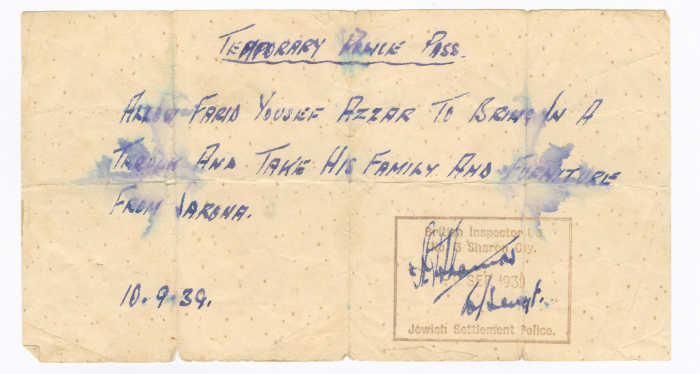 TEMPORARY POLICE PASS.
ALLOW FARID YOUSEF AZZAR TO BRING IN A
TRUCK AND TAKE HIS FAMILY AND FURNITURE
FROM SARONA.
10.9.39.
British Inspector I/c
No. 3 Sharon Coy.
SEP 1939
Jewish Settlement Police.